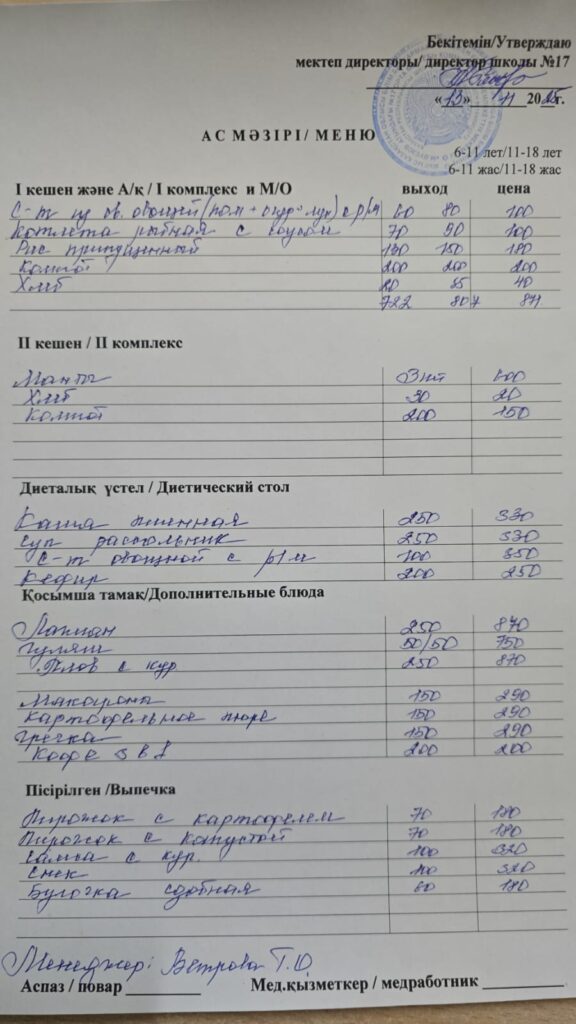 Бекітемін/Утверждаю
мектеп директоры/ директор школы №17
«13» 11 2025г.
АС МӘЗІРІ/ МЕНЮ
6-11 лет/11-18 лет
6-11 жас/11-18 жас
I кешен және А/қ / I комплекс и М/О выход цена
С-т из св. овощей (пом + огур + лук) с р/м 60 80 100
Котлета рыбная с соусом 70 90 100
Рис припущенный 130 150 180
Компот 200 200 200
Хлеб 20 35 40
722 807 871
II кешен / II комплекс
Манты 3 шт 600
Хлеб 30 20
Компот 200 150
Диеталық үстел / Диетический стол
Каша пшенная 250 330
Суп рассольник 250 530
С-т овощной с р/м 100 350
Кефир 200 250
Қосымша тамақ/Дополнительные блюда
Лагман 250 870
Гуляш 50/50 750
Плов с кур 250 870
Макароны 150 290
Картофельное пюре 150 290
Гречка 150 290
Кофе 3 в 1 200 200
Пісірілген /Выпечка
Пирожок с картофелем 70 180
Пирожок с капустой 70 180
Самса с кур. 100 320
Снек 100 320
Булочка сдобная 60 180
Менеджер: Ветрова Т.О.
Аспаз / повар Мед.қызметкер / медработник